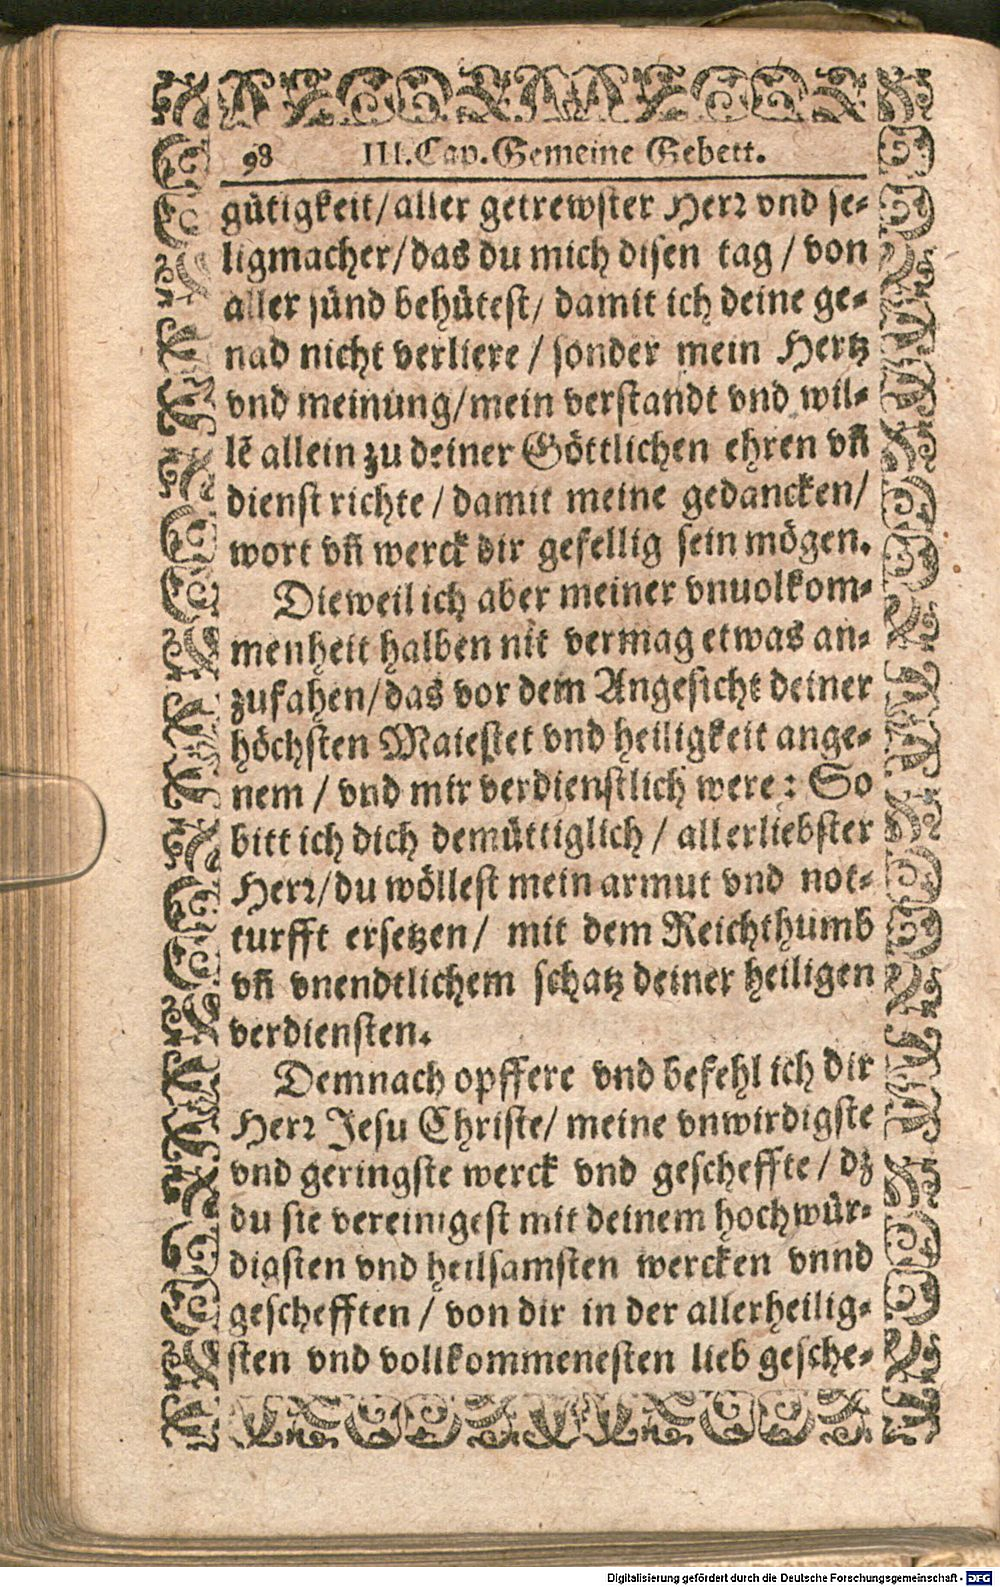 98 III. Cap. Gemeine Gebett.
gütigkeit/ aller getrewster Herꝛ vnd se-
ligmacher/ das du mich disen tag / von
aller sünd behütest/ damit ich deine ge-
nad nicht verliere / sonder mein Hertz
vnd meinung/ mein verstandt vnd wil-
lẽ allein zu deiner Göttlichen ehren vñ
dienst richte / damit meine gedancken/
wort vñ werck dir gefellig sein mögen.
Dieweil ich aber meiner vnuolkom-
menheit halben nit vermag etwas an-
zufahen/ das vor dem Angesicht deiner
höchsten Maiestet vnd heiligkeit ange-
nem / vnd mir verdienstlich were: So
bitt ich dich demüttiglich / allerliebster
Herꝛ/ du wöllest mein armut vnd not-
turfft ersetzen/ mit dem Reichthumb
vñ vnendtlichem schatz deiner heiligen
verdiensten.
Demnach opffere vnd befehl ich dir
Herꝛ Jesu Christe/ meine vnwirdigste
vnd geringste werck vnd gescheffte / dz
du sie vereinigest mit deinem hochwür-
digsten vnd heilsamsten wercken vnnd
geschefften / von dir in der allerheilig-
sten vnd vollkommenesten lieb gesche-
Digitalisierung gefördert durch die Deutsche Forschungsgemeinschaft - DFG